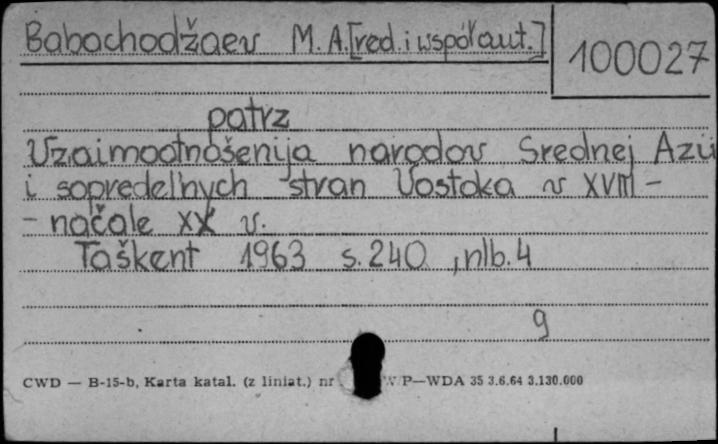 Babachodžaev M.A. [red. i współaut.]
100027
patrz
Vzaimootnošenija narodov Srednej Azii
i sopredel'nych stran Vostoka v XVIII -
- načale XX v.
Taškent 1963 s. 240, nlb. 4
9
CWD — B-15-b, Karta katal. (z liniat.) nr W P—WDA 35 3.6.64 3.130.000